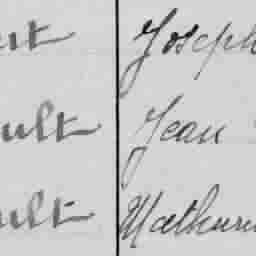 ut Joseph
ult Jean
ult Mathurin